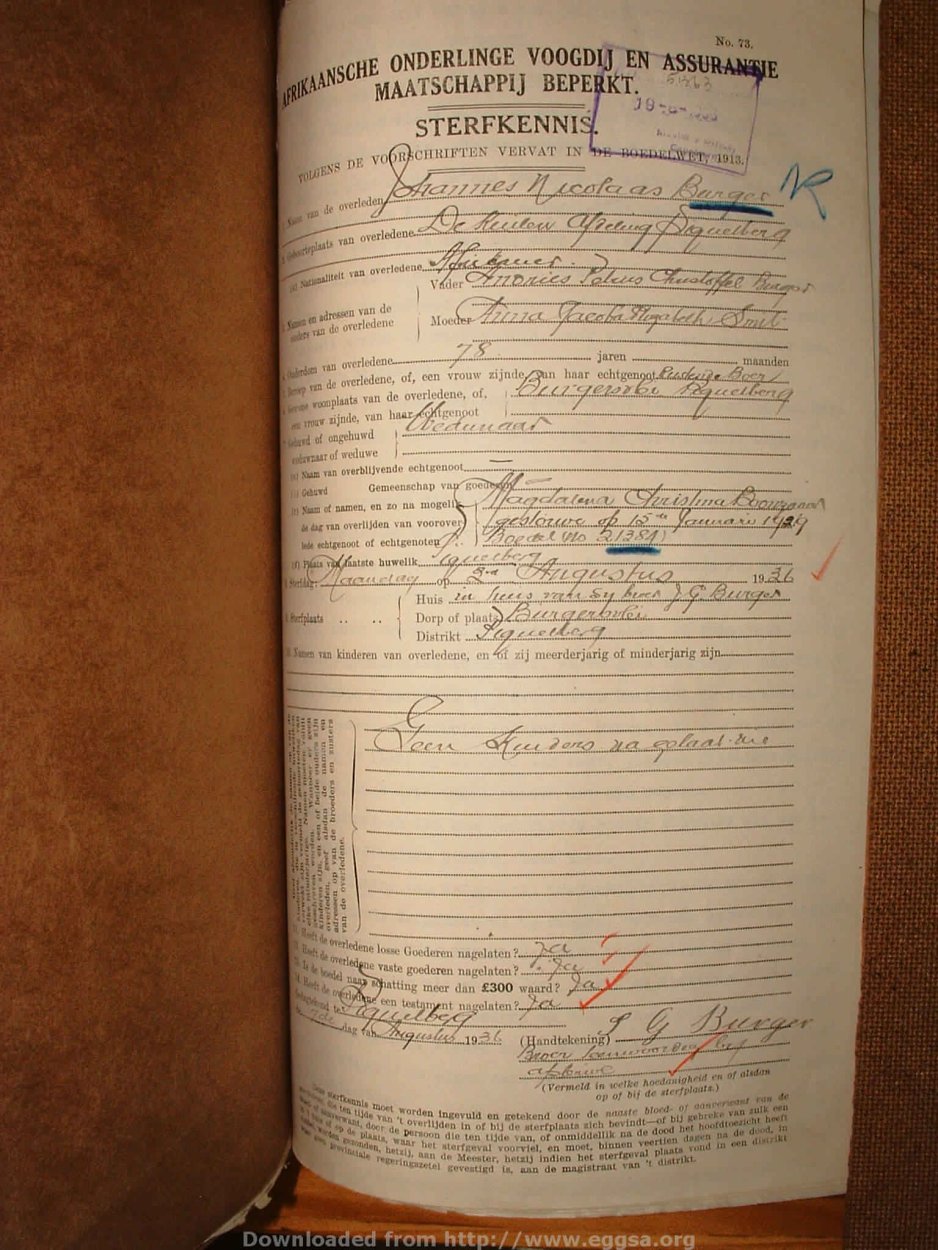 No. 73.
AFRIKAANSCHE ONDERLINGE VOOGDIJ EN ASSURANTIE
MAATSCHAPPIJ BEPERKT.
STERFKENNIS.
VOLGENS DE VOORSCHRIFTEN VERVAT IN DE BOEDELWET, 1913.
Naam van de overleden Johannes Nicolaas Burger
Geboorteplaats van overledene De Afdeling Piquetberg
Nationaliteit van overledene Afrikaner
Namen en adressen van de ouders van de overledene
Vader Andries Petrus Christoffel Burger
Moeder Anna Jacoba Elizabeth Smit
Ouderdom van overledene 78 jaren maanden
Beroep van de overledene, of, een vrouw zijnde, van haar echtgenoot Rustende Boer
Gewone woonplaats van de overledene, of, Burgersvlei Piquetberg
een vrouw zijnde, van haar echtgenoot
Gehuwd of ongehuwd Wedunaar
weduwnaar of weduwe
Naam van overblijvende echtgenoot —
Gehuwd Gemeenschap van goederen
Naam of namen, en zo na mogelik Magdalena Christina
de dag van overlijden van voorover- gestorwe op 15de Januari 1929
lede echtgenoot of echtgenoten Boedel No 21381
Plaats van laatste huwelik Piquetberg
Sterfdag Maandag op 3rd Augustus 1936
Sterfplaats
Huis in huis van sy broer J. G. Burger
Dorp of plaats Burgersvlei
Distrikt Piquetberg
10. Namen van kinderen van overledene, en of zij meerderjarig of minderjarig zijn
Geen Kinders na gelaat nie
kinderen zijn, en een of beide ouders zijn
overleden, geef alsdan de namen en
adressen op van de broeders en zusters
van de overledene.
Heeft de overledene losse Goederen nagelaten? Ja
Heeft de overledene vaste goederen nagelaten? Ja
Is de boedel naar schatting meer dan £300 waard? Ja
14. Heeft de overledene een testament nagelaten? Ja
Gedagtekend te Piquetberg
dag van Augustus 1936
(Handtekening) J G Burger
Broer
(Vermeld in welke hoedanigheid en of alsdan
op of bij de sterfplaats.)
Deze sterfkennis moet worden ingevuld en getekend door de naaste bloed- of aanverwant van de
die ten tijde van 't overlijden in of bij de sterfplaats zich bevindt—of bij gebreke van zulk een
aanverwant, door de persoon die ten tijde van, of onmiddellik na de dood het hoofdtoezicht heeft
in of op de plaats, waar het sterfgeval voorviel, en moet, binnen veertien dagen na de dood, in
worden gezonden, hetzij, aan de Meester, hetzij indien het sterfgeval plaats vond in een distrikt
provinciale regeringszetel gevestigd is, aan de magistraat van 't distrikt.
Downloaded from http://www.eggsa.org